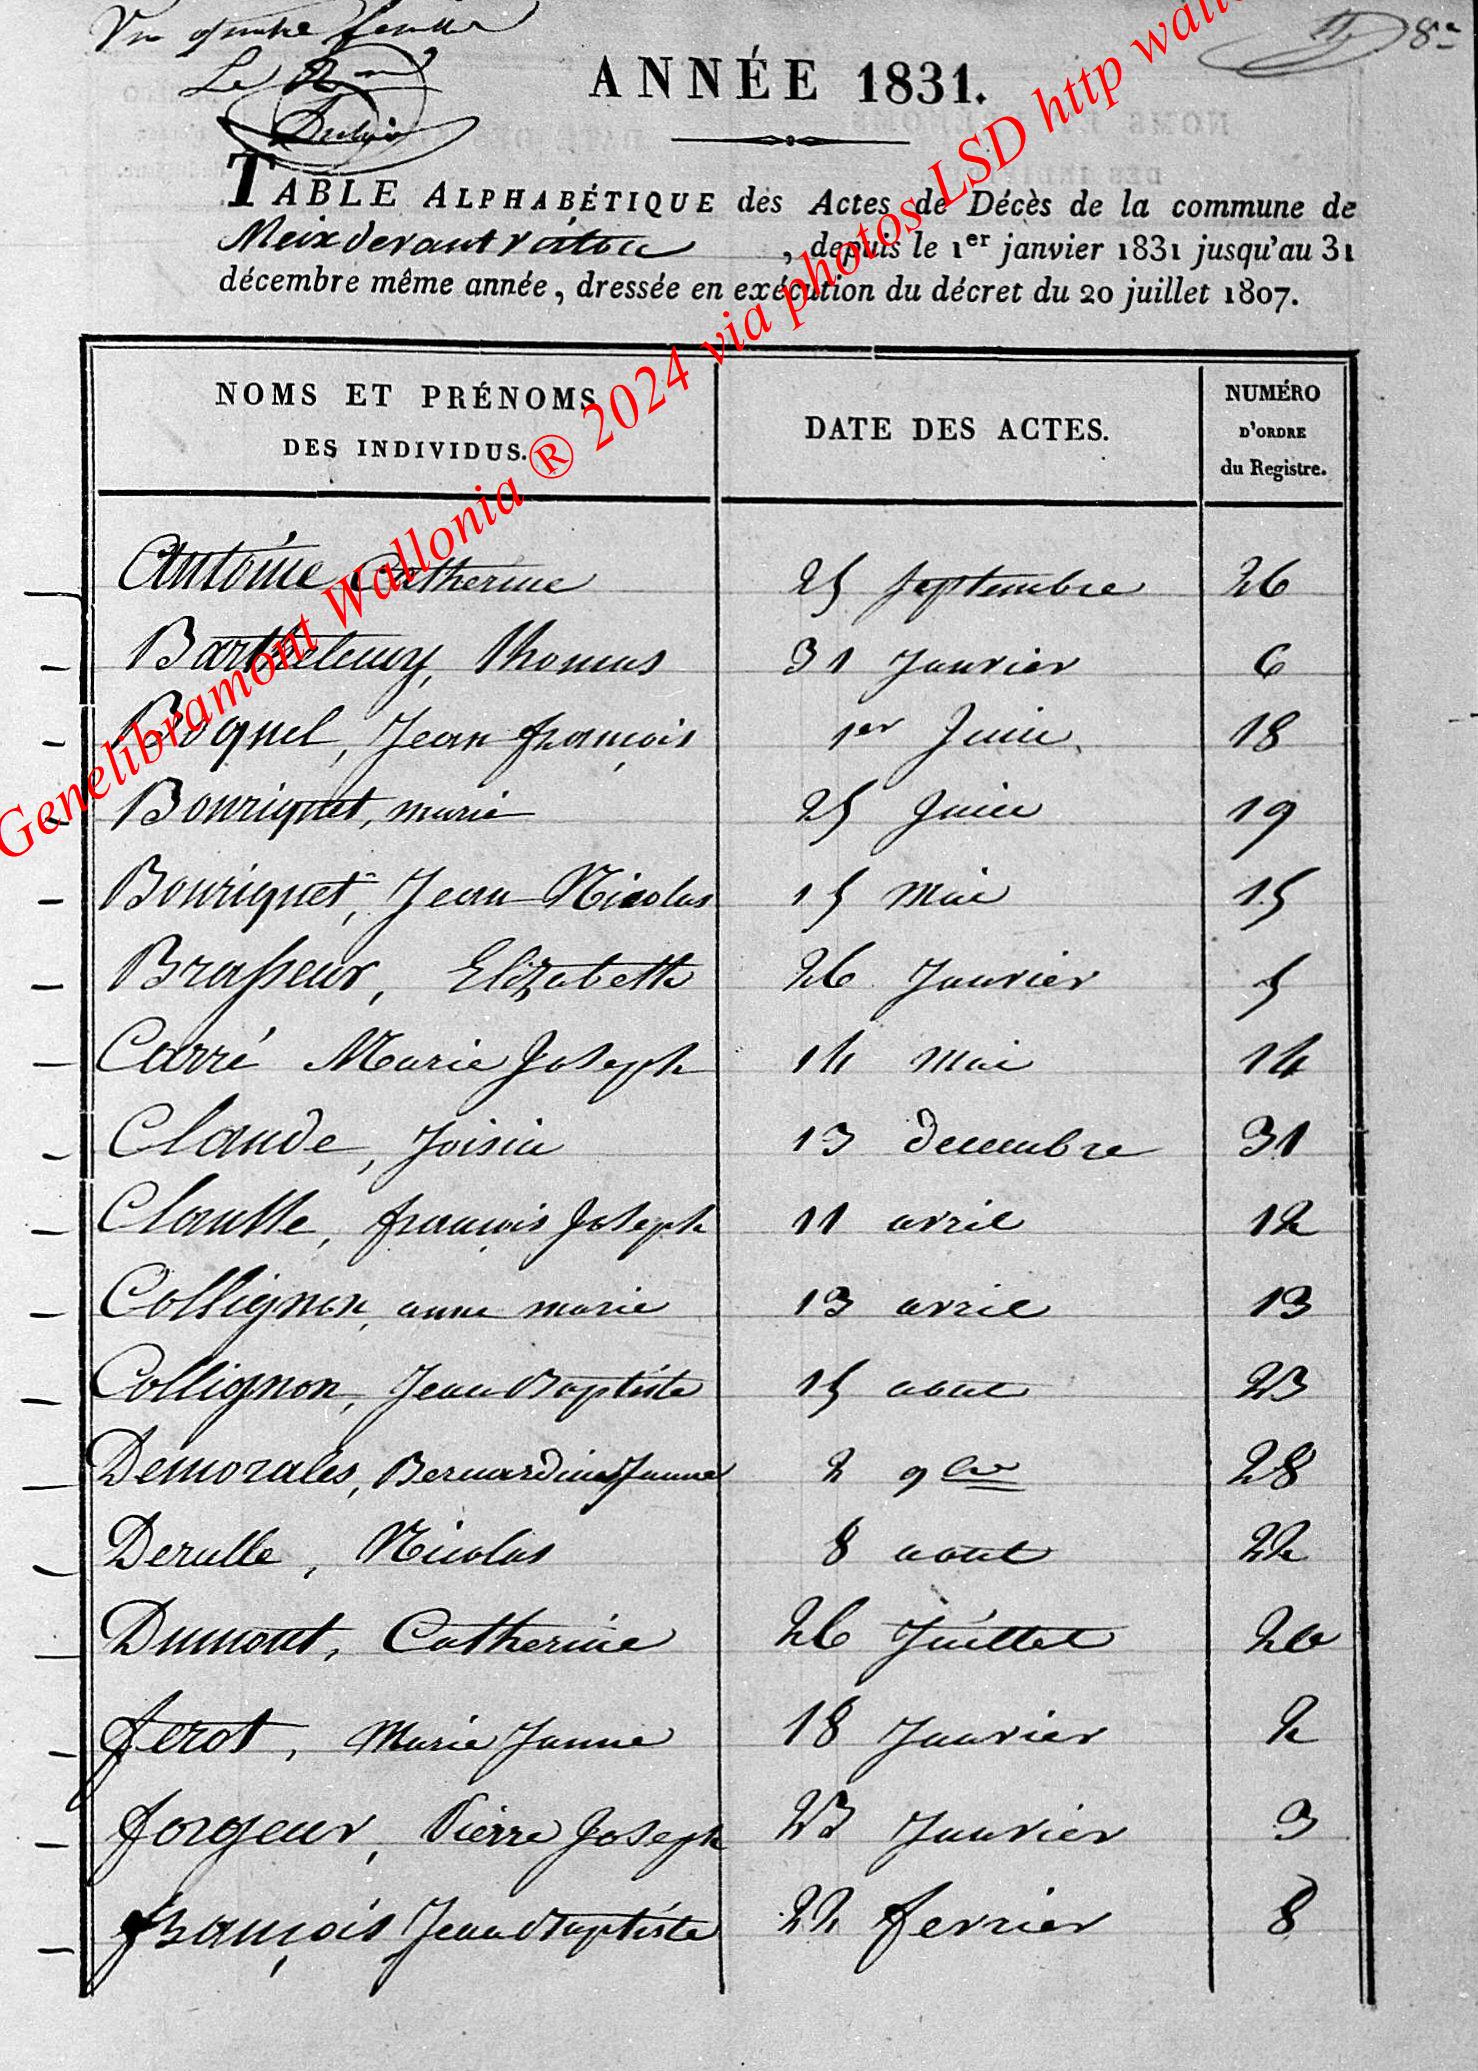 Le
8
ANNÉE 1831.
TABLE ALPHABÉTIQUE des Actes de Décès de la commune de
Meix devant virton, depuis le 1er janvier 1831 jusqu'au 31
décembre même année, dressée en exécution du décret du 20 juillet 1807.
NOMS ET PRÉNOMS DES INDIVIDUS. DATE DES ACTES. NUMÉRO D'ORDRE du Registre.
Antoine Catherine 25 septembre 26
Barthelemy, Thomas 31 Janvier 6
Boquel, Jean françois 1er Juin 18
Bouriquet, marie 25 Juin 19
Bouriquet, Jean Nicolas 15 Mai 15
Brasseur, Elizabeth 26 Janvier 5
Carré Marie Joseph 14 Mai 14
Claude, 13 decembre 31
Clausse, françois Joseph 11 avril 12
Collignon, anne marie 13 avril 13
Collignon, Jean Baptiste 15 aout 23
Demorales, Bernardine Jeanne 2 9bre 28
Derulle, Nicolas 8 aout 22
Dumont, Catherine 26 Juillet 20
ferot, Marie Jeanne 18 Janvier 2
forgeur, Pierre Joseph 23 Janvier 3
françois Jean Baptiste 22 fevrier 8
Genelibramont Wallonia ® 2024 via photos LSD http wall